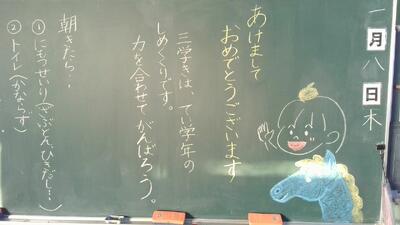 一月八日木
あけまして
おめでとうございます
三学きは、てい学年の
しめくくりです。
力を合わせてがんばろう。
朝きたら・・
①にもつせいり(ざぶとん、ひきだし…)
②トイレ(かならず)